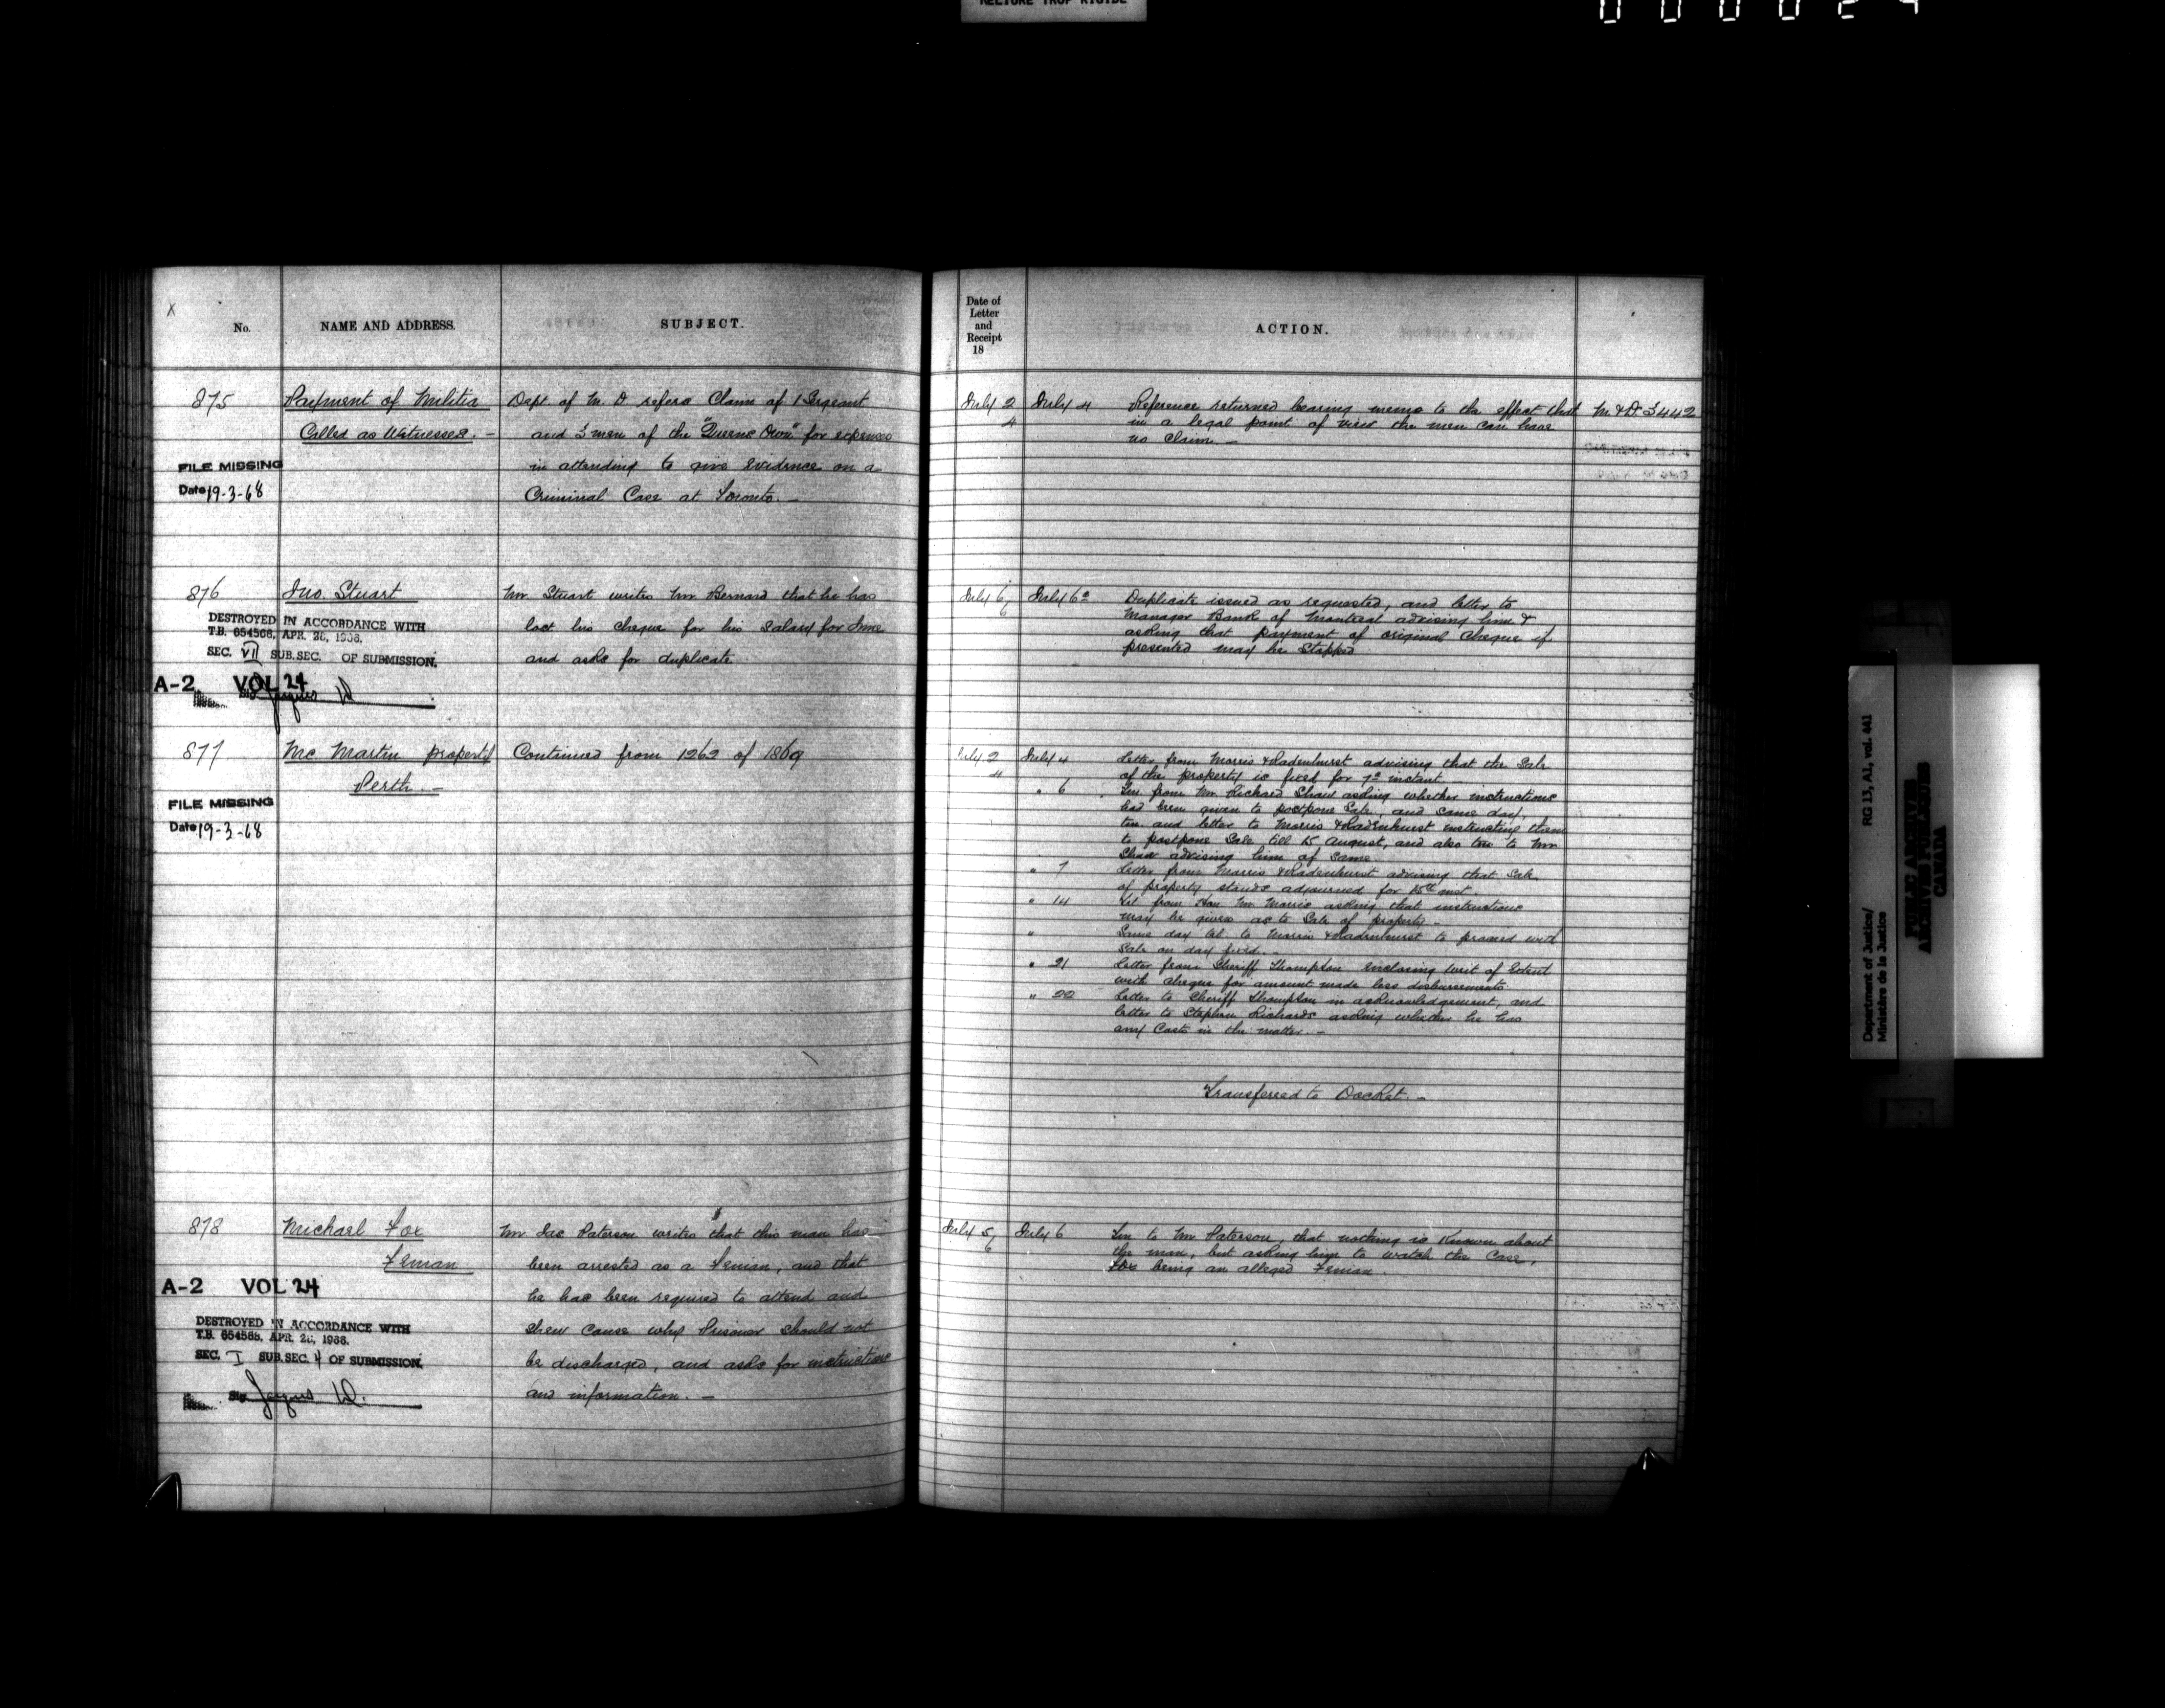 RELIURE TROP RIGIDE
No.
NAME AND ADDRESS.
SUBJECT.
Date of
Letter
and
Receipt
18
ACTION.
875
Payment of Militia
Called as Witnesses. -
FILE MISSING
Date 19-3-68
Dept of M. D refers Claim of 1 Sergeant
and 3 men of the "Queens Own" for expenses
in attending to give evidence on a
Criminal Case at Toronto. -
July 2
4
July 4
Reference returned bearing memo to the effect that
in a legal point of view the men can have
no claim. -
M. & D. 3442
876
Jno. Stuart
DESTROYED IN ACCORDANCE WITH
T.B. 654568, APR. 26, 1966.
SEC. VII SUB.SEC. OF SUBMISSION.
A-2 VOL 24
Mr. Stuart writes Mr Bernard that he has
lost his cheque for his Salary for June
and asks for duplicate
July 6
6
July 6
Duplicate issued as requested, and letter to
Manager Bank of Montreal advising him &
asking that payment of original cheque if
presented may be Stopped
877
Mc Martin property
Perth. -
FILE MISSING
Date 19-3-68
Continued from 1262 of 1869
July 2
4
July 4
Letter from Morris & Radenhurst advising that the Sale
of the property is fixed for 7th instant.
" 6
from Mr. Richard Shaw asking whether instructions
had been given to postpone Sale, and same day
and letter to Morris & Radenhurst instructing them
to postpone Sale till 15 August, and also to Mr
Shaw advising him of same.
" 7
Letter from Morris & Radenhurst advising that Sale
of property stands adjourned for 15th inst.
" 14
Tel from Hon Mr. Morris asking that instructions
may be given as to Sale of property. -
"
Same day tel. to Morris & Radenhurst to proceed with
Sale on day fixed. -
" 21
Letter from Sheriff Thompson enclosing writ of Extent
with cheque for amount made less disbursements
" 22
Letter to Sheriff Thompson in acknowledgement, and
letter to Stephen Richards asking whether he has
any Costs in the matter. -
Transferred to Docket. -
878
Michael Fox
Fenian
A-2 VOL 24
DESTROYED IN ACCORDANCE WITH
T.B. 654568, APR. 26, 1966.
SEC. I SUB.SEC. 4 OF SUBMISSION.
Mr. Jas Paterson writes that this man has
been arrested as a Fenian, and that
he has been required to attend and
shew cause why Prisoner should not
be discharged, and asks for instructions
and information. -
July 5
6
July 6
to Mr Paterson, that nothing is Known about
the man, but asking him to watch the Case,
Fox being an alleged Fenian.
Department of Justice/ RG 13, A1, vol. 441
Ministère de la Justice
PUBLIC ARCHIVES
ARCHIVES PUBLIQUES
CANADA